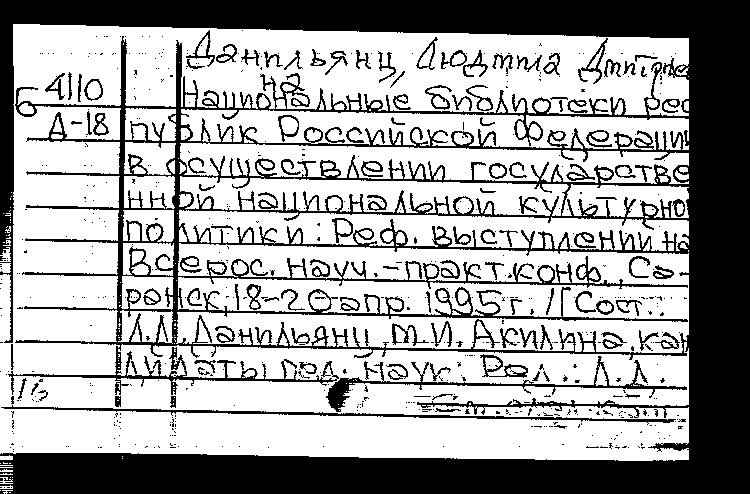 Данильянц, Людмила Дмитрие
на
Национальные библиотеки рес
Б 4110
Д-18
публик Российской Федерации
в осуществлении государстве
нной национальной культурной
политики: Реф. выступлений на
Всерос. науч.-практ. конф., Са-
ранск, 18-20 апр. 1995 г. / [Сост.:
Л.Д. Данильянц, М.И. Акилина, кан
дидаты пед. наук; Ред.: Л.Д.
16
См. след. карт.